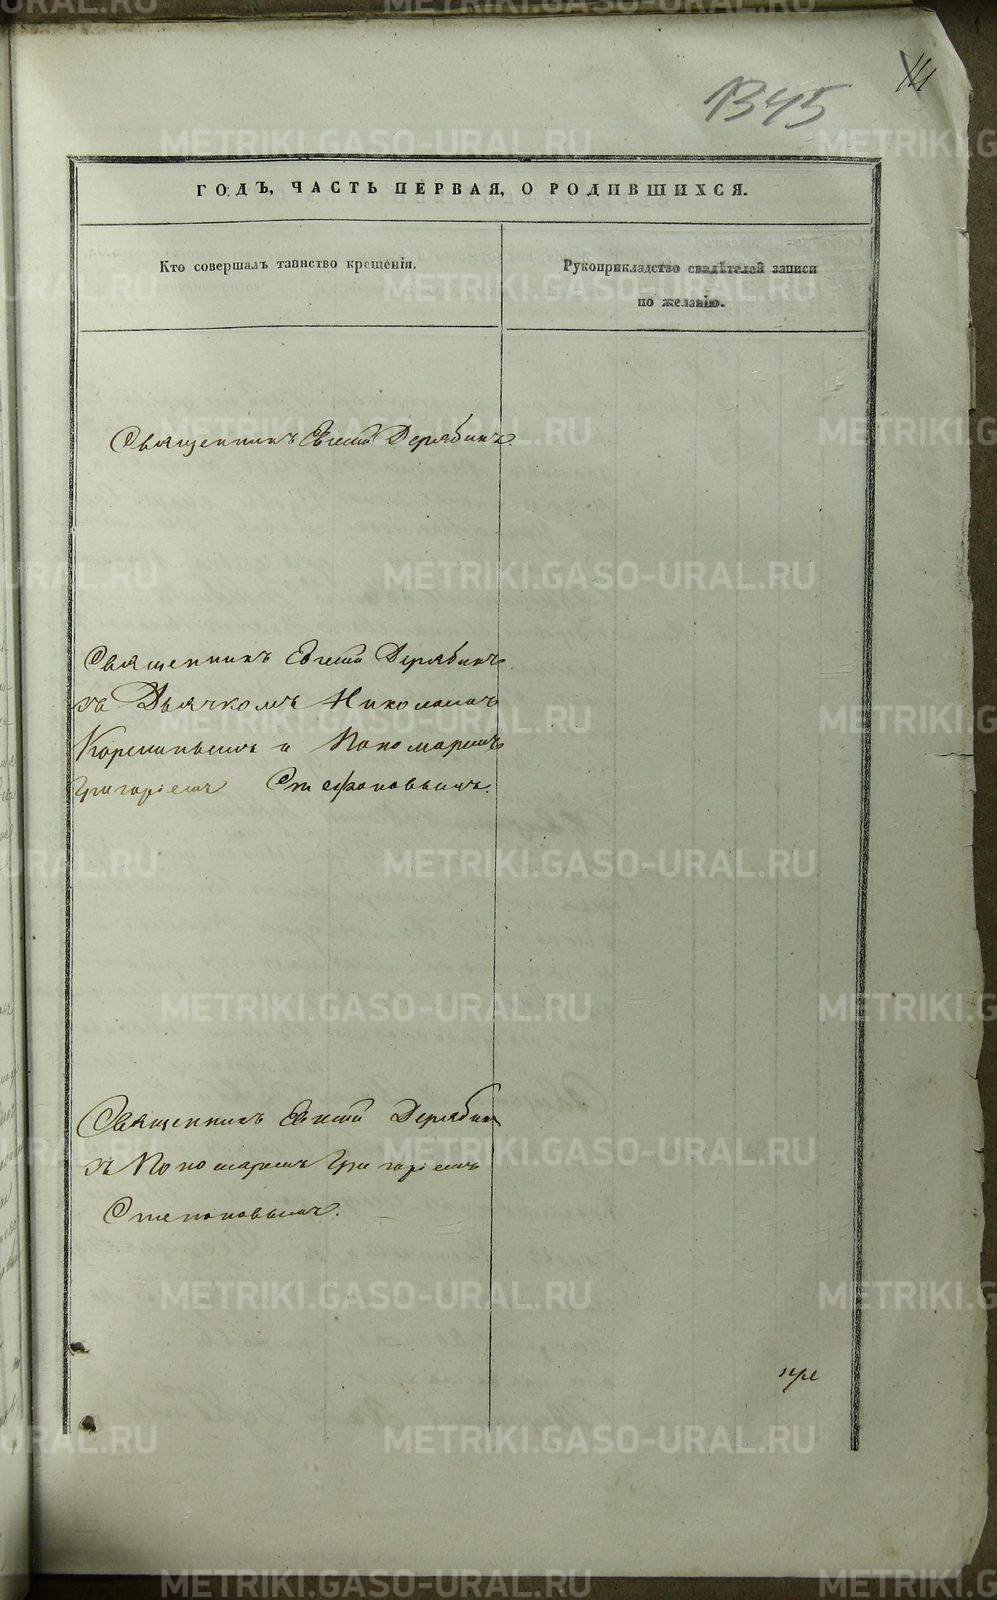 1345
ГОДЪ, ЧАСТЬ ПЕРВАЯ, О РОДИВШИХСЯ.
Кто совершалъ таинство крещенія.
Рукоприкладство свидѣтелей записи
по желанію.
Священникъ Евгеній Дерябинъ.
Священникъ Евгеній Дерябинъ
съ Дьячкомъ Николаемъ
и Пономаремъ
Григоріемъ Стефановымъ.
Священникъ Евгеній Дерябинъ
съ Пономаремъ Григоріемъ
Степановымъ.
METRIKI.GASO-URAL.RU